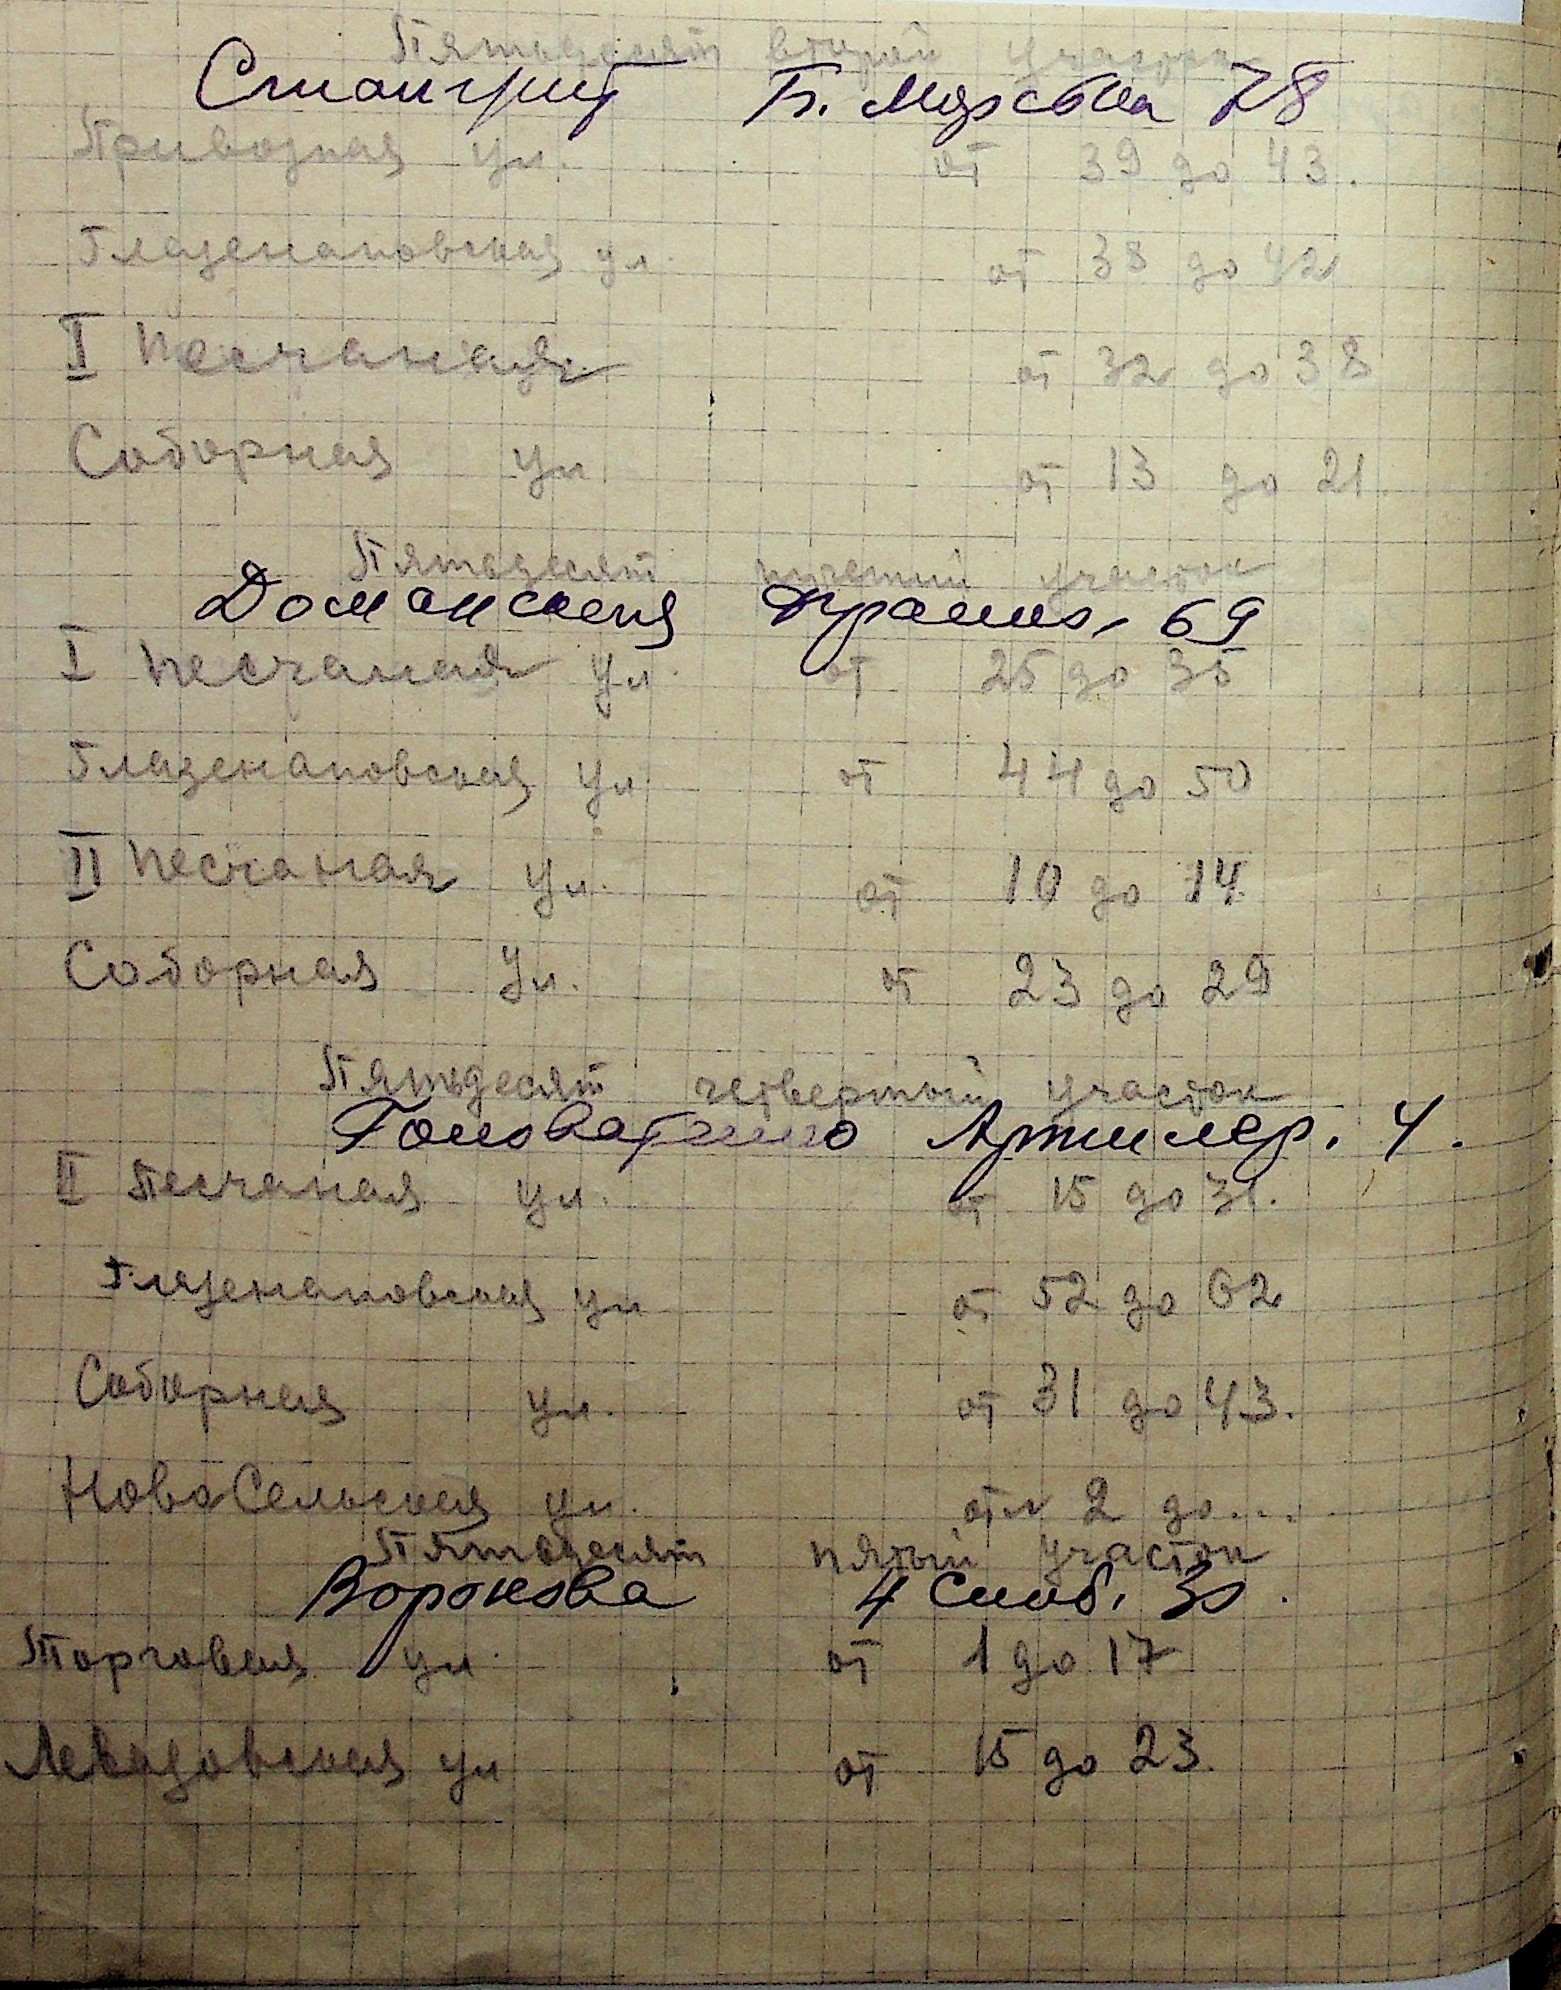 Пятьдесят второй участок
Б. Морская 78
Привозная ул. от 39 до 43.
Глазенаповская ул. от 38 до 42
II Песчаная от 32 до 38
Соборная ул от 13 до 21.
Пятьдесят третий участок
Доманская 69
I Песчаная ул. от 25 до 35
Глазенаповская ул от 44 до 50
II Песчаная ул. от 10 до 14
Соборная ул. от 23 до 29
Пятьдесят четвертый участок
Артилер. 4.
II Песчаная ул. от 15 до 31.
Глазенаповская ул от 52 до 62
Соборная ул. от 31 до 43.
НовоСельская ул. от 2 до...
Пятьдесят пятый участок
Воронова 4 Слоб. 30.
Торговая ул. от 1 до 17
Левадовская ул от 15 до 23.